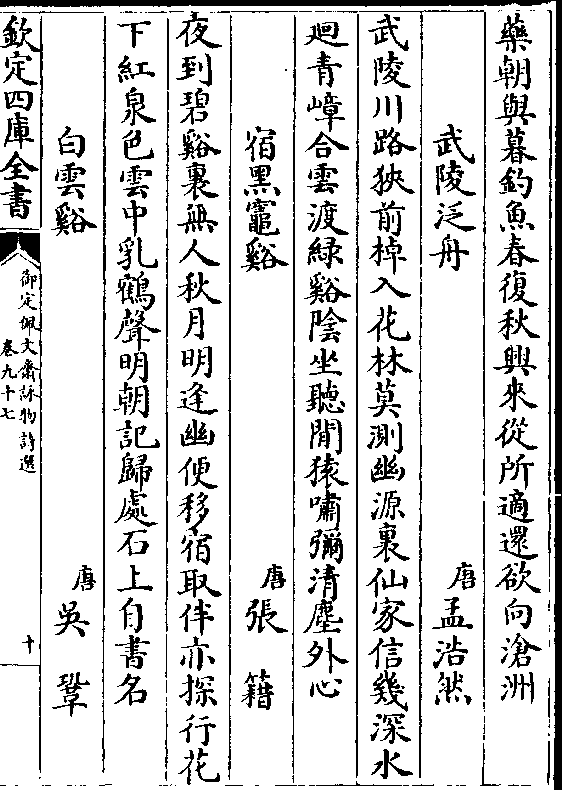 藥朝與暮釣魚春復秋興來從所適還欲向滄洲
武陵泛舟　唐孟浩然
武陵川路狹前棹入花林莫測幽源裏仙家信幾深水
迴青嶂合雲渡緑谿陰坐聽閒猿嘯彌清塵外心
宿黑竈谿　唐張籍
夜到碧谿裏無人秋月明逢幽便移宿取伴亦探行花
下紅泉色雲中乳鶴聲明朝記歸處石上自書名
白雲谿　唐吳鞏
欽定四庫全書
御定佩文齋詠物詩選
卷九十七
十